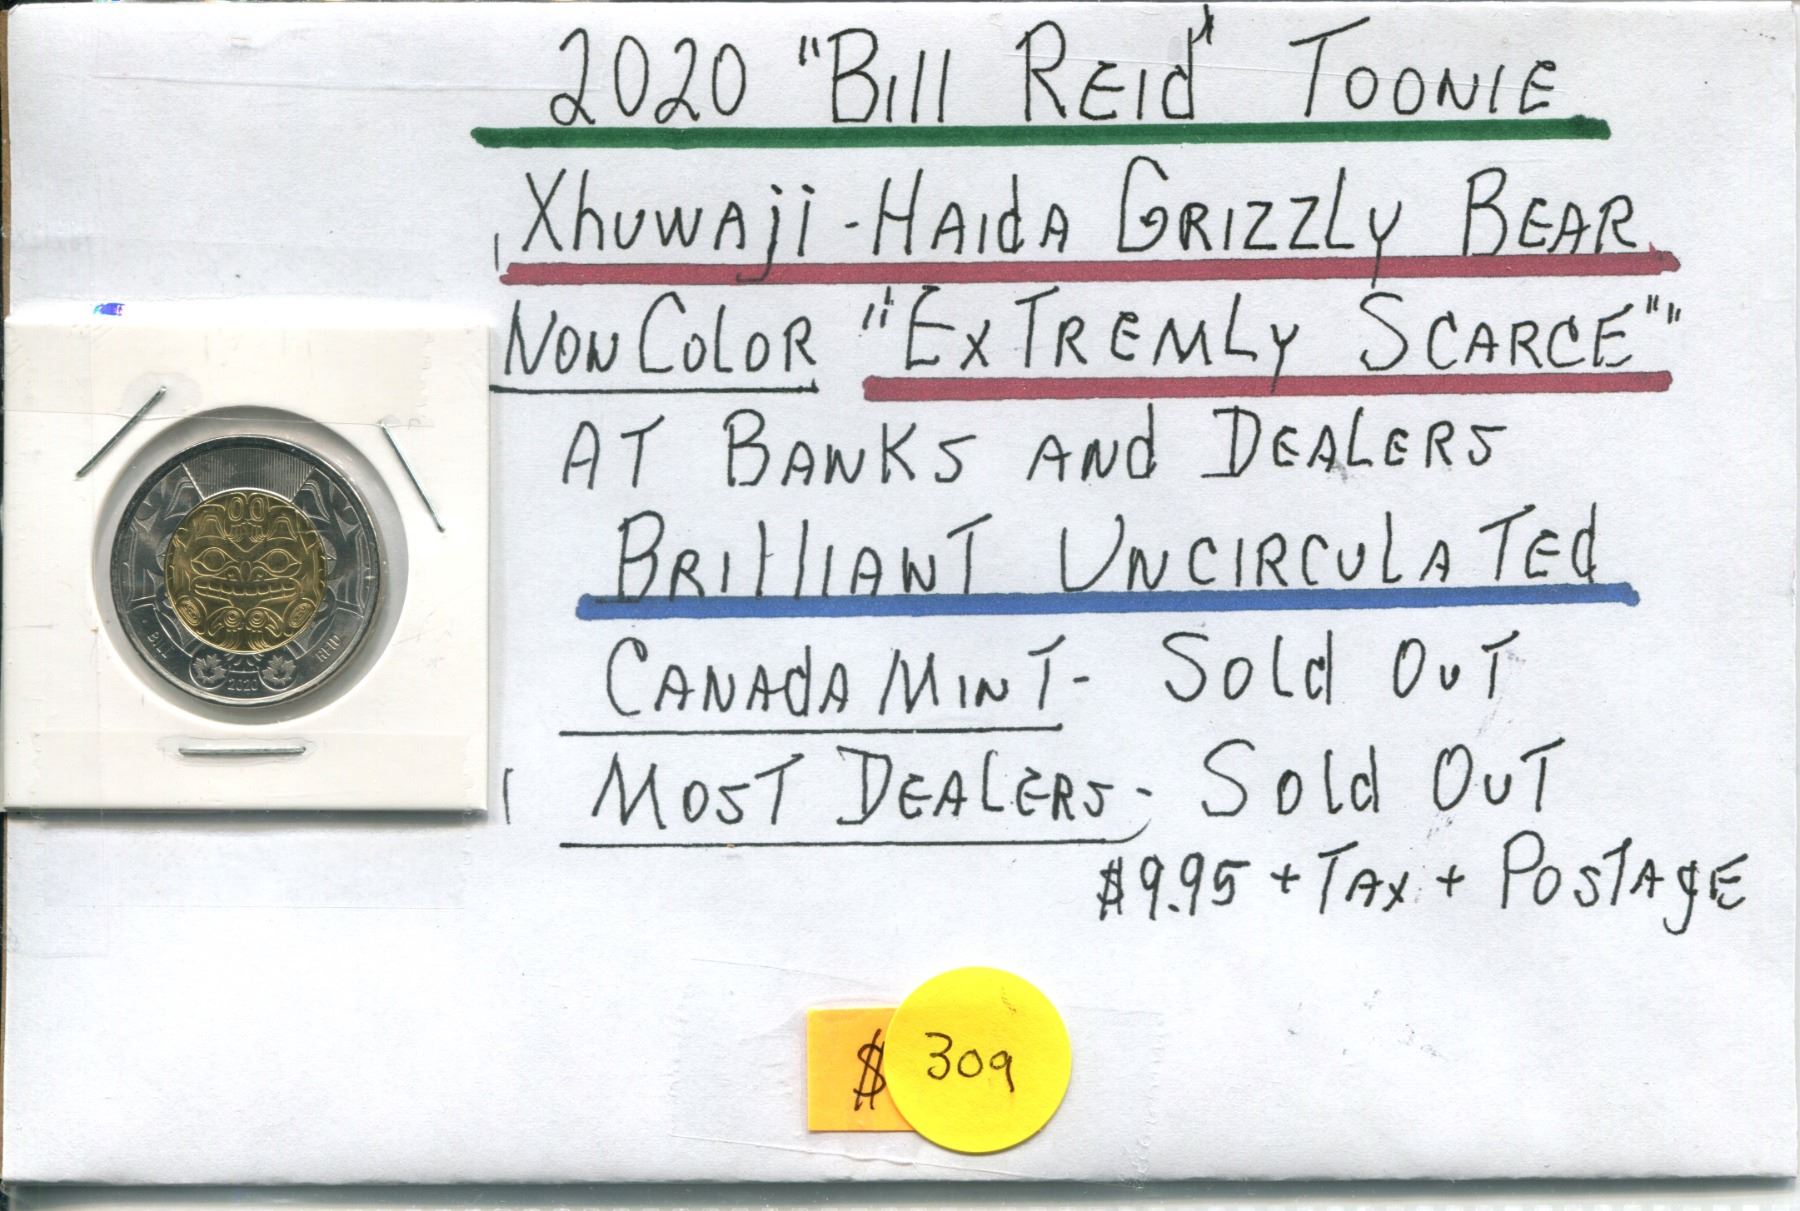 2020 "Bill Reid" Toonie
Xhuwaji - Haida Grizzly Bear
Non Color "Extremly Scarce""
At Banks and Dealers
Brilliant Uncirculated
Canada Mint - Sold Out
Most Dealers - Sold Out
$9.95 + Tax + Postage
BILL REID
2020
$ 309